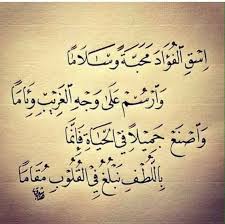 اِسْقِ الْفُؤَادَ مَحَبَّةً وَسَلَامًا
وَارْسُمْ عَلَى وَجْهِ الْغَرِيبِ وِئَامَا
وَاصْنَعْ جَمِيلًا فِي الْحَيَاةِ فَإِنَّمَا
بِاللُّطْفِ نَبْلُغُ فِي الْقُلُوبِ مُقَامَا